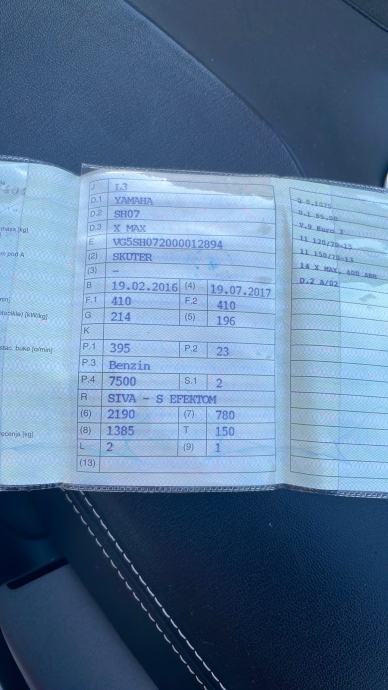 J L3
D.1 YAMAHA
D.2 SH07
D.3 X MAX
E VG5SH072000012894
(2) SKUTER
(3) -
B 19.02.2016 (4) 19.07.2017
F.1 410 F.2 410
G 214 (5) 196
K
P.1 395 P.2 23
P.3 Benzin
P.4 7500 S.1 2
R SIVA - S EFEKTOM
(6) 2190 (7) 780
(8) 1385 T 150
L 2 (9) 1
(13)
masa [kg]
om pod A
min]
[kW/kg]
stac. buke [o/min]
[kg]
Q 0.1075
U.1 85,00
V.9 Euro 3
11 120/70-13
11 150/70-13
14 X MAX, 400 ABS
D.2 A/02